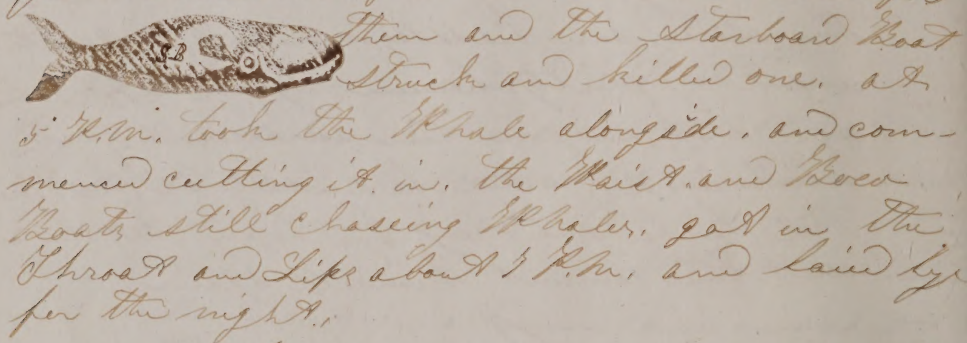 them and the Starboard Boat
S.B
struck and killed one. at
5 P.M. took the Whale alongside. and com-
menced cutting it in. the Waist. and Bow
Boats still chaseing Whales. got in the
Throat and Lips about P.M. and laied by
for the night.